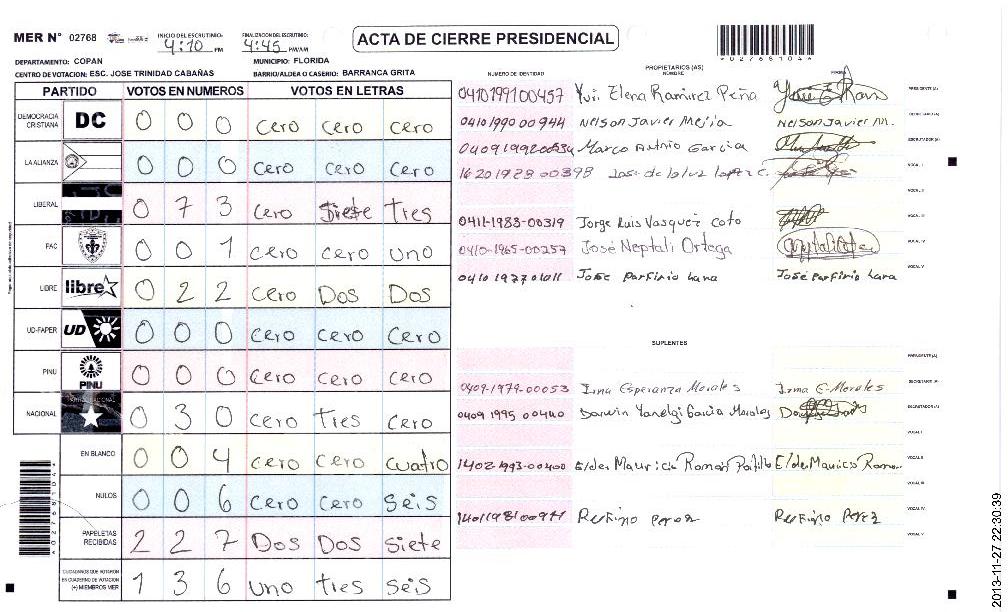 MER N° 02768
INICIO DEL ESCRUTINIO: 4:10 PM
FINALIZACION DEL ESCRUTINIO: 4:45 PM/AM
ACTA DE CIERRE PRESIDENCIAL
DEPARTAMENTO: COPAN
MUNICIPIO: FLORIDA
CENTRO DE VOTACION: ESC. JOSE TRINIDAD CABAÑAS
BARRIO/ALDEA O CASERIO: BARRANCA GRITA
PARTIDO VOTOS EN NUMEROS VOTOS EN LETRAS
DEMOCRACIA CRISTIANA DC 0 0 0 Cero Cero Cero
LA ALIANZA 0 0 0 Cero Cero Cero
LIBERAL 0 7 3 Cero Siete Tres
PAC 0 0 1 Cero cero uno
LIBRE libre 0 2 2 Cero Dos Dos
UD-FAPER UD 0 0 0 Cero Cero Cero
PINU PINU 0 0 0 Cero Cero Cero
NACIONAL 0 3 0 Cero tres Cero
EN BLANCO 0 0 4 Cero Cero cuatro
NULOS 0 0 6 Cero Cero Seis
PAPELETAS RECIBIDAS 2 2 7 Dos Dos siete
CIUDADANOS QUE VOTARON
EN CUADERNO DE VOTACION
(+) MIEMBROS MER 1 3 6 uno tres seis
NUMERO DE IDENTIDAD PROPIETARIOS (AS) NOMBRE FIRMA
0410199100457 Yuri Elena Ramirez Peña PRESIDENTE (A)
0410 1990 00944 Nelson Javier Mejia Nelson Javier M. SECRETARIO (A)
0409199200534 Marco Antnio Garcia ESCRUTADOR (A)
1620 1928 00398 Jose de la luz lopez c. VOCAL I
VOCAL II
0411-1983-00319 Jorge Luis Vasquez Coto VOCAL III
0410-1965-00257 José Neptali Ortega VOCAL IV
0410 1977 01011 Jose Porfirio Lara Jose Porfirio Lara VOCAL V
SUPLENTES
PRESIDENTE (A)
0409-1979-00053 Irma Esperanza Morales Irma E. Morales SECRETARIO (A)
0409 1995 00440 Darwin Yanelgi Garcia Morales ESCRUTADOR (A)
VOCAL I
1402-1993-00400 Elder Mauricio Roman Patillo Elder Mauricio Roman VOCAL II
VOCAL III
1401198100971 Rufino Perez Rufino Perez VOCAL IV
VOCAL V
*02768104*
2013-11-27 22:30:39